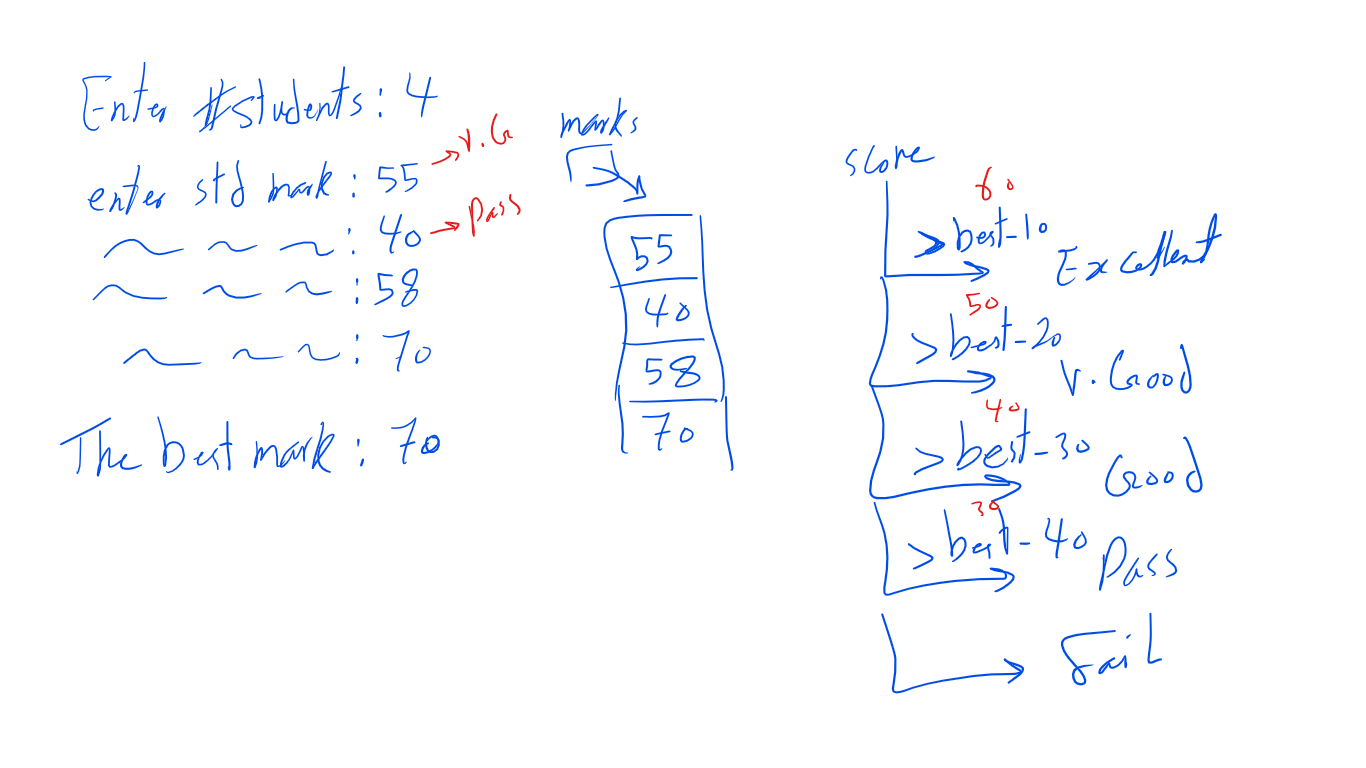 Enter #students: 4
enter std mark: 55 → V.G
: 40 → Pass
: 58
: 70
The best mark: 70
marks
55
40
58
70
score
60
> best-10 Excellent
50
> best-20 V. Good
40
> best-30 Good
30
> best-40 Pass
Fail